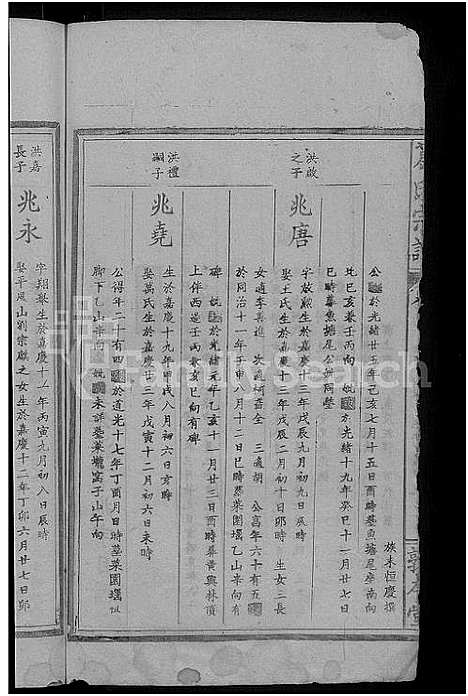 族末恒慶撰
公歿於光緒廿五年己亥七月十五日酉時墓魚塘尾座南向
北己亥兼壬丙向 妣歿於光緒十九年癸巳十一月廿七日
巳時墓魚塘尾公妣同塋
洪啟之子
兆唐
字啟勲生於嘉慶十三年戊辰九月初九日辰時
娶王氏生於嘉慶十三年戊辰二月初十日卯時 生女二長
女適李 次適柯 三適胡 公享年六十有五
歿於同治十一年壬申八月十二日巳時墓菜園堰乙山辛向有
碑 妣歿於光緒元年乙亥十一月廿三日酉時葬黃興林頂
上伴西邊壬丙兼亥巳向有碑
洪禮嗣子
兆堯
生於嘉慶十九年甲戌八月初六日亥時
娶萬氏生於嘉慶廿三年戊寅十二月初六日未時
公得年二十有四歿於道光十七年丁酉月日時墓菜園堰
脚下乙山辛向 妣歿未詳墓菜壠窩子山午向
洪嘉長子
兆永
字翔 生於嘉慶十一年丙寅九月初八日辰時
娶平風山劉宗獻之女生於嘉慶十二年丁卯六月廿七日卯
FamilySearch